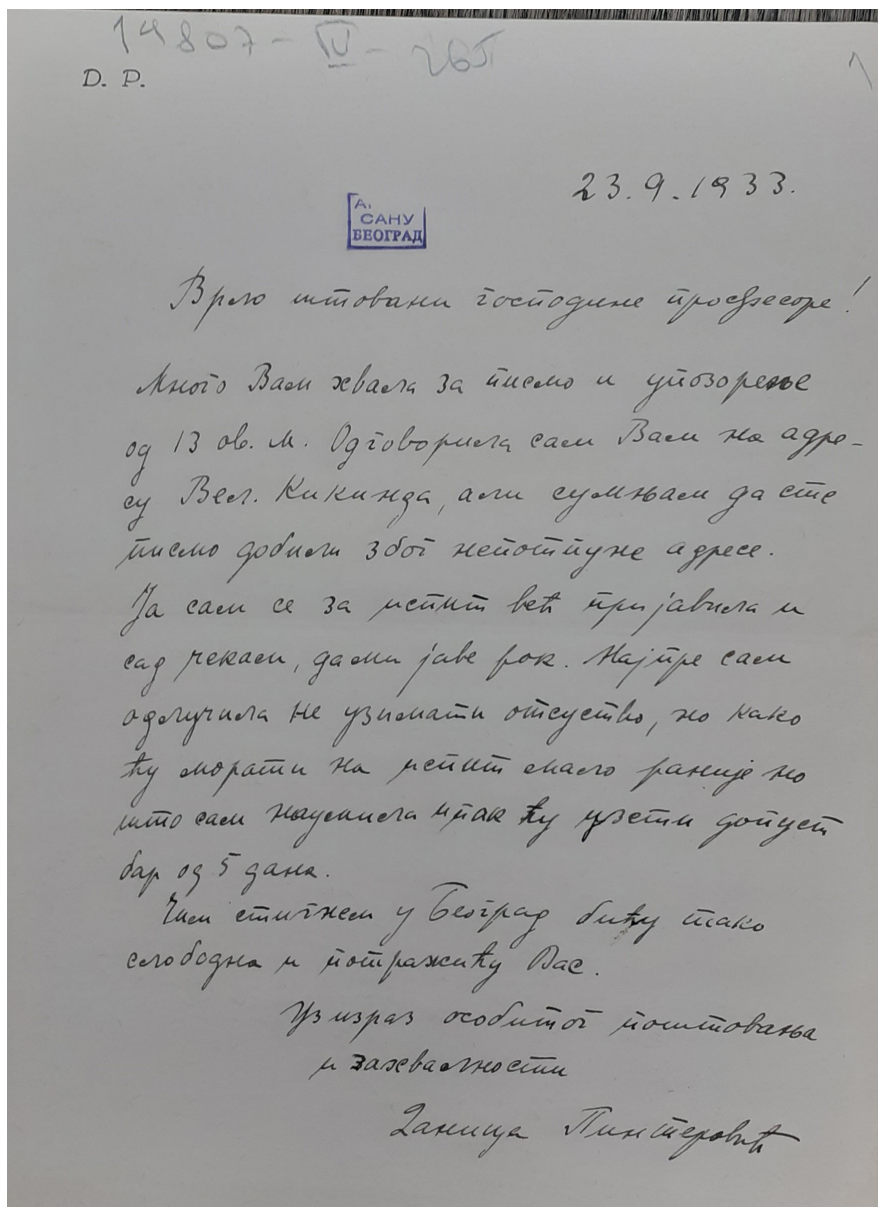 14807-IV-26П
1
D. P.
23.9.1933.
А.
САНУ
БЕОГРАД
Врло штовани господине професоре!
Много Вам хвала за писмо и упозорење
од 13 ов. м. Одговорила сам Вам на адре-
су Вел. Кикинда, али сумњам да сте
писмо добили због непотпуне адресе.
Ја сам се за испит већ пријавила и
сад чекам, да ми јаве рок. Најпре сам
одлучила не узимати отсуство, но како
ћу морати на испит мало раније но
што сам наумила ипак ћу узети допуст
бар од 5 дана.
Чим стигнем у Београд бићу тако
слободна и потражићу Вас.
Уз израз особитог поштовања
и захвалности
Даница Пинтеровић